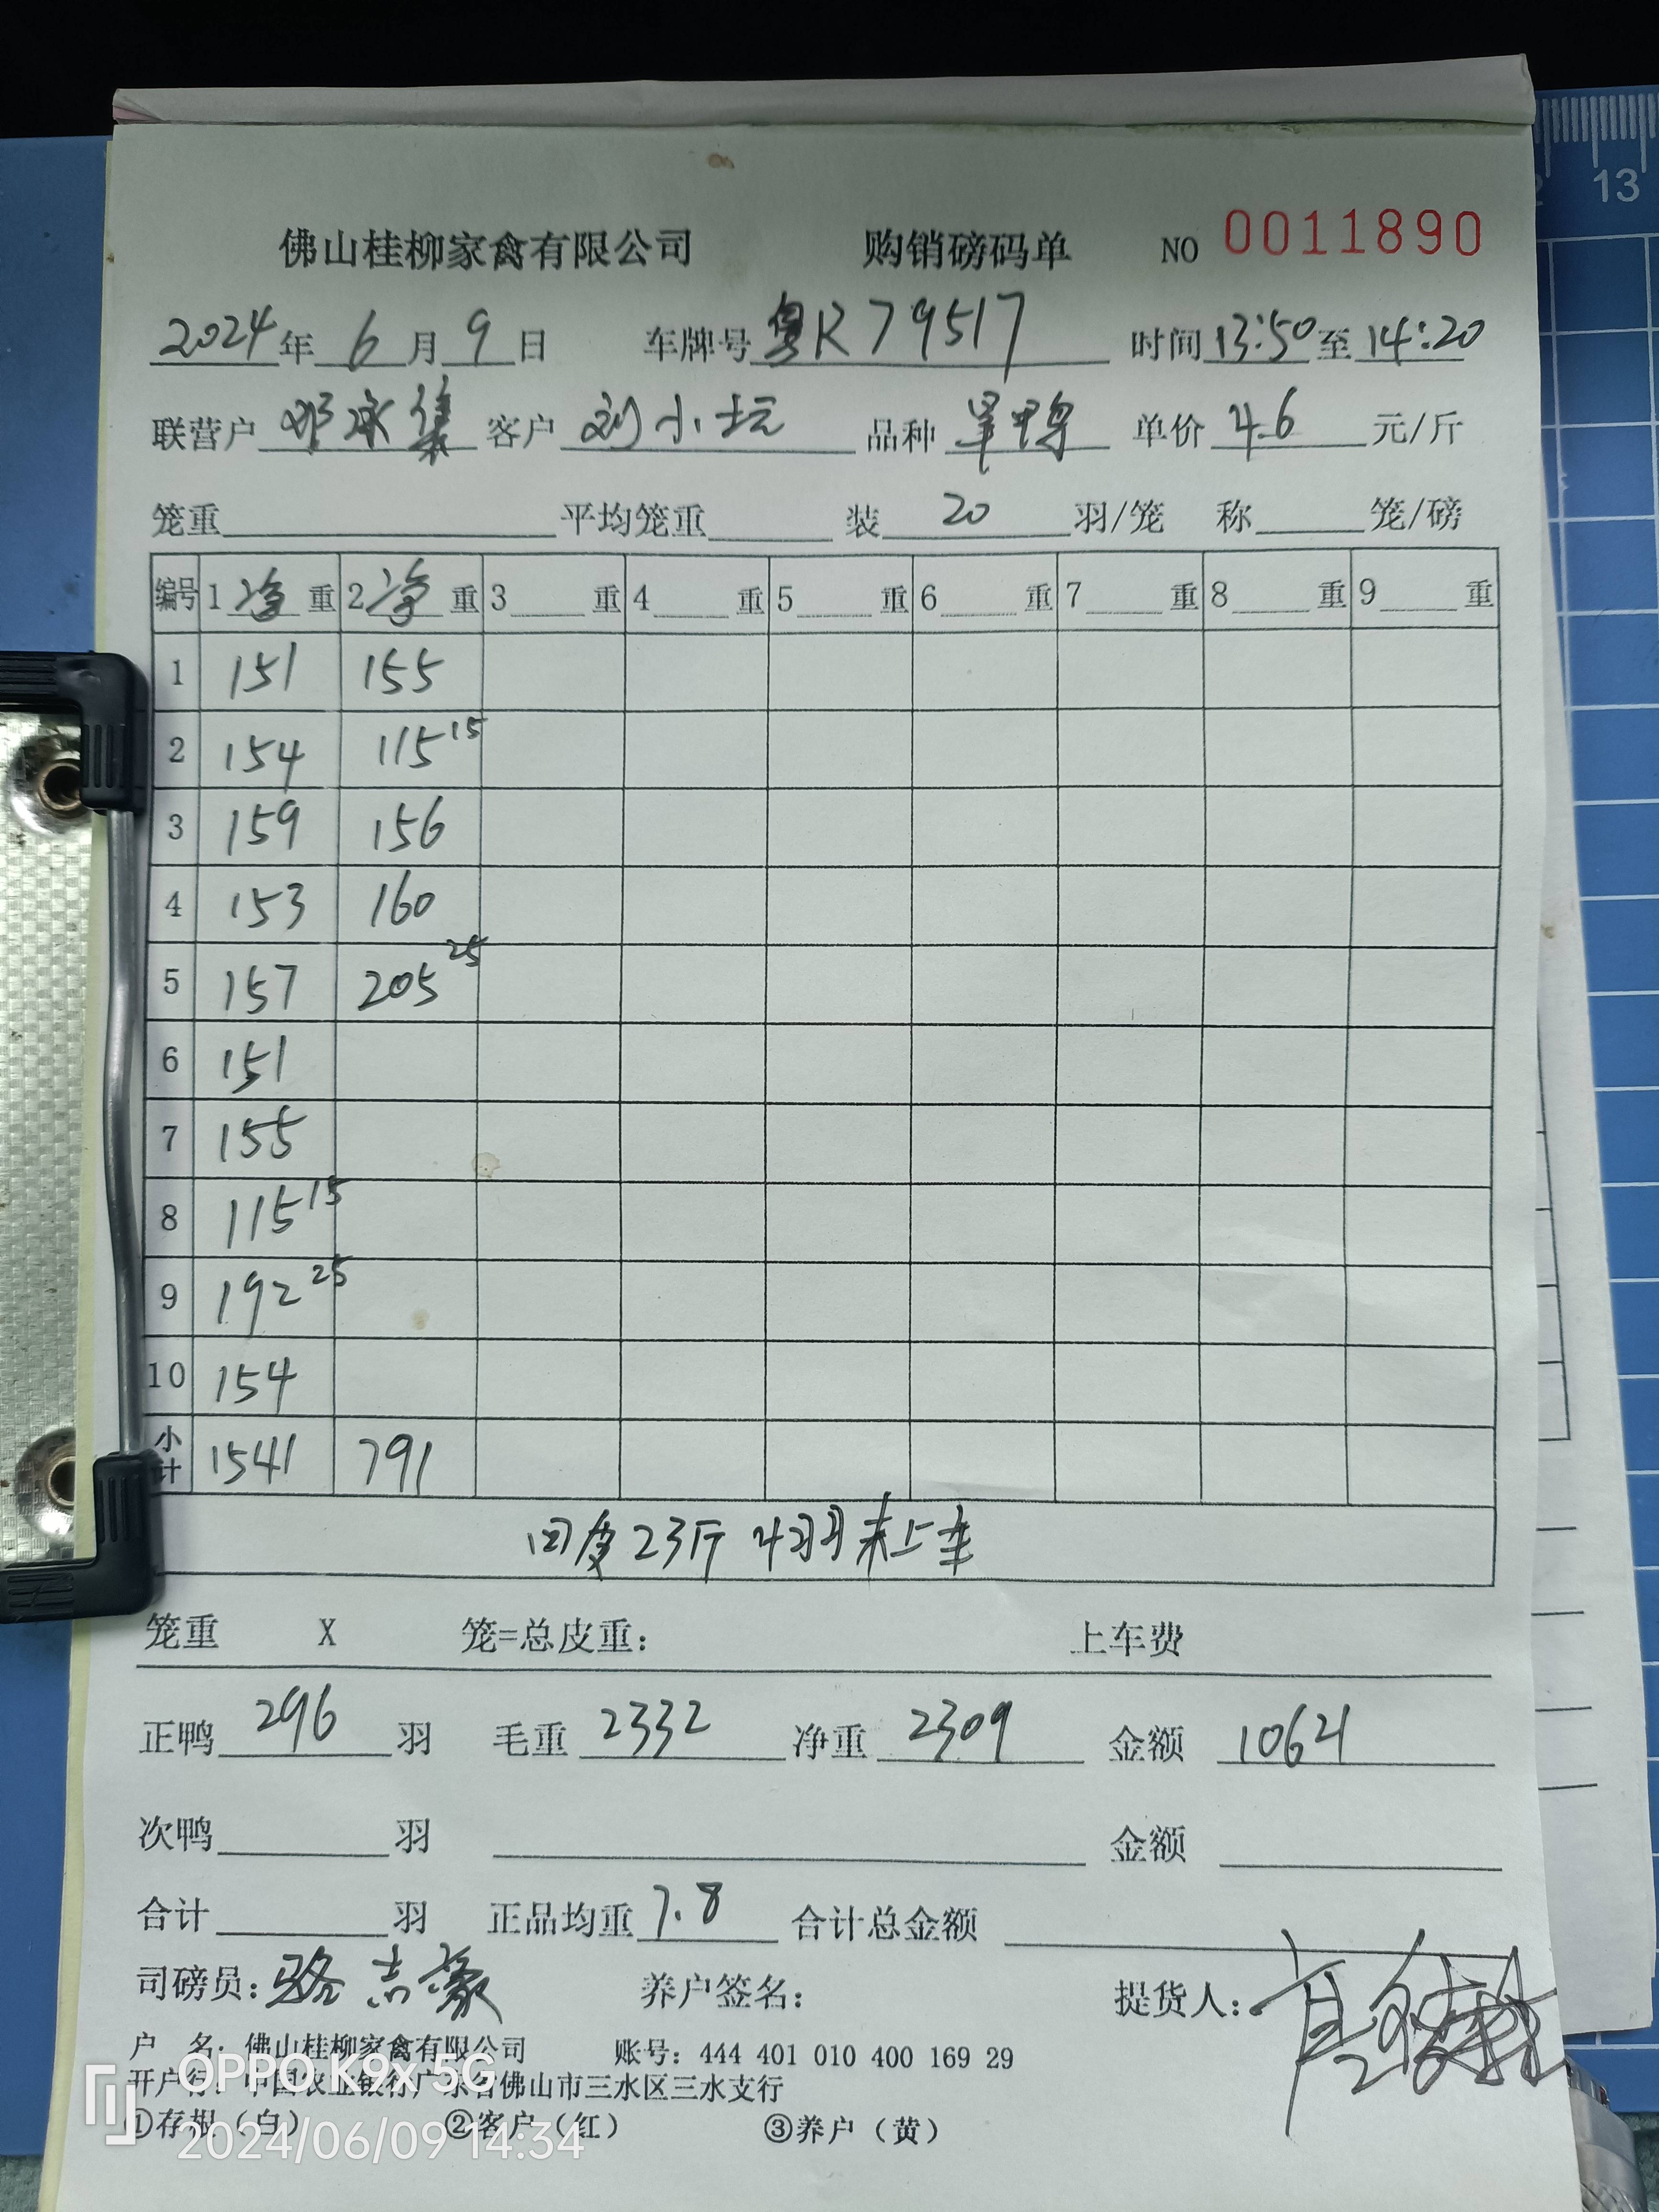 13
佛山桂柳家禽有限公司 购销磅码单 NO 0011890
2024年 6月 9日 车牌号 粤R79517 时间 13:50 至 14:20
联营户 邓冰集 客户 刘小坛 品种 旱鸭 单价 4.6 元/斤
笼重 平均笼重 装 20 羽/笼 称 笼/磅
编号 1 净 重 2 净 重 3 重 4 重 5 重 6 重 7 重 8 重 9 重
1 151 155
2 154 115 15
3 159 156
4 153 160
5 157 205 25
6 151
7 155
8 115 15
9 192 25
10 154
小计 1541 791
回皮23斤 4羽未上车
笼重 X 笼=总皮重: 上车费
正鸭 296 羽 毛重 2332 净重 2309 金额 10621
次鸭 羽 金额
合计 羽 正品均重 7.8 合计总金额
司磅员: 骆志豪 养户签名: 提货人:
户 名: 佛山桂柳家禽有限公司 账号: 444 401 010 400 169 29
开户行: 中国农业银行广东省佛山市三水区三水支行
①存根（白） ②客户（红） ③养户（黄）
OPPO K9x 5G
2024/06/09 14:34